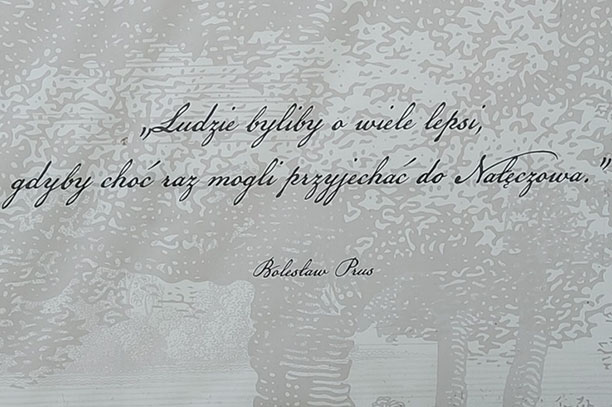 „Ludzie byliby o wiele lepsi,
gdyby choć raz mogli przyjechać do Nałęczowa.”
Bolesław Prus